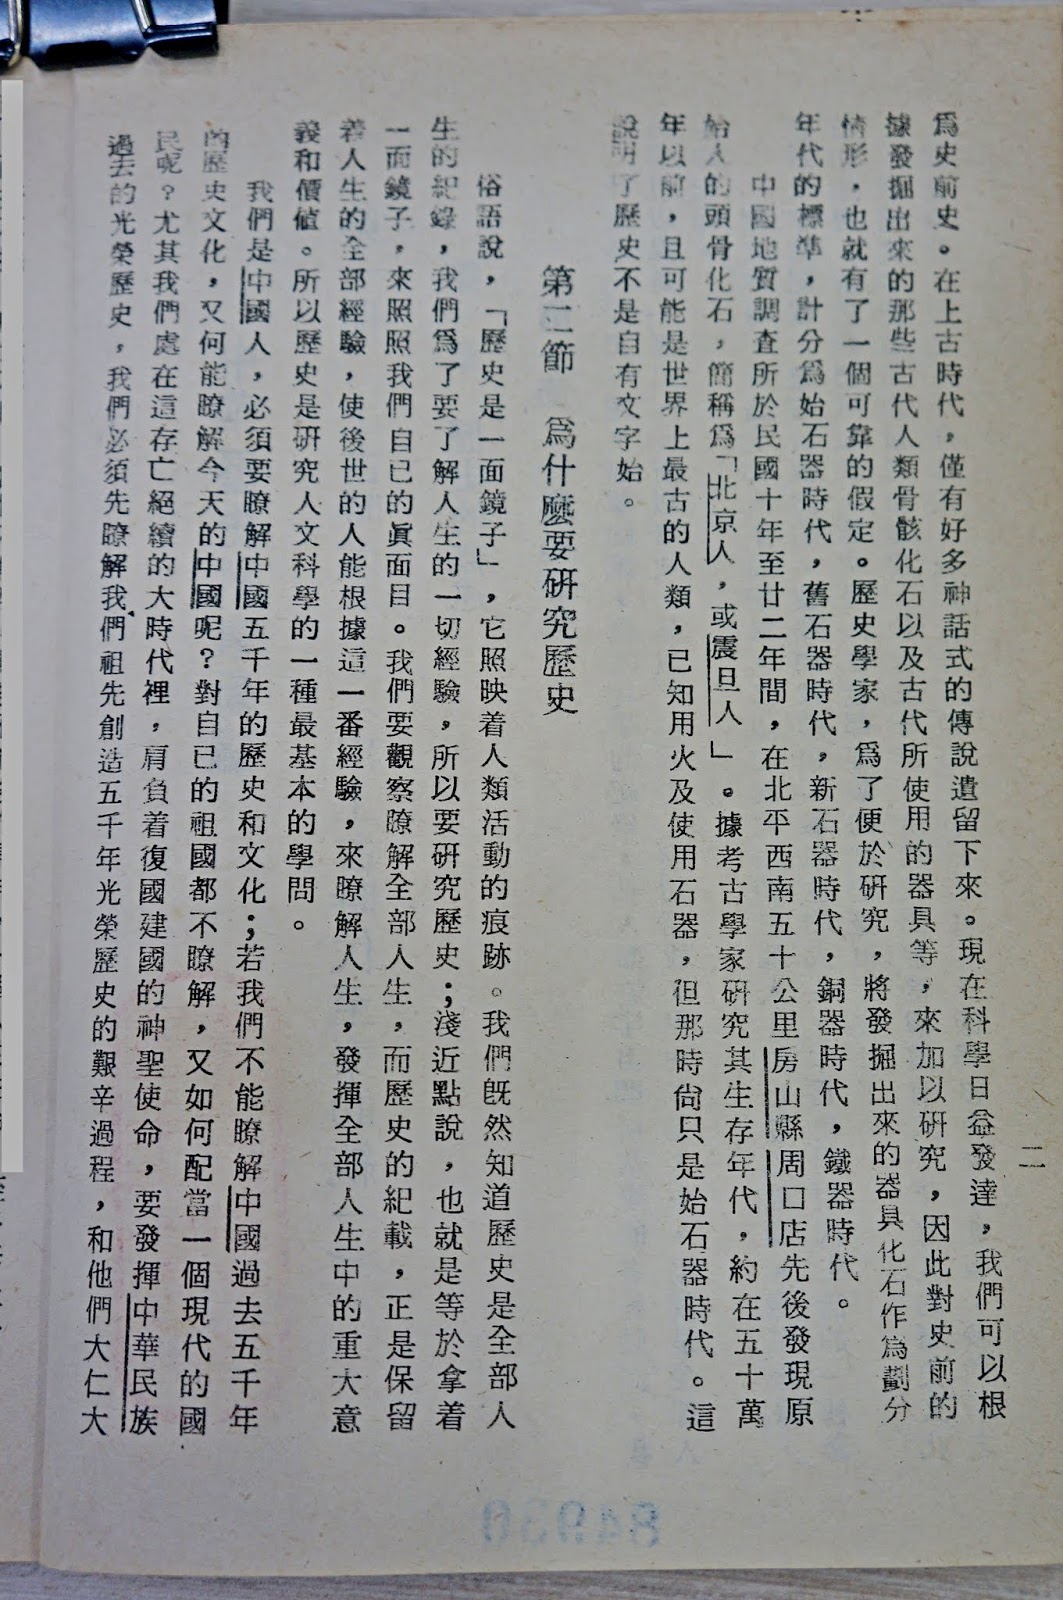 二
爲史前史。在上古時代，僅有好多神話式的傳說遺留下來。現在科學日益發達，我們可以根
據發掘出來的那些古代人類骨骸化石以及古代所使用的器具等，來加以研究，因此對史前的
情形，也就有了一個可靠的假定。歷史學家，爲了便於研究，將發掘出來的器具化石作爲劃分
年代的標準，計分爲始石器時代，舊石器時代，新石器時代，銅器時代，鐵器時代。
中國地質調查所於民國十年至廿二年間，在北平西南五十公里房山縣周口店先後發現原
始人的頭骨化石，簡稱爲「北京人，或震旦人」。據考古學家研究其生存年代，約在五十萬
年以前，且可能是世界上最古的人類，已知用火及使用石器，但那時尙只是始石器時代。這
說明了歷史不是自有文字始。
第二節　爲什麼要研究歷史
俗語說，「歷史是一面鏡子」，它照映着人類活動的痕跡。我們旣然知道歷史是全部人
生的紀錄，我們爲了要了解人生的一切經驗，所以要研究歷史；淺近點說，也就是等於拿着
一面鏡子，來照照我們自已的眞面目。我們要觀察瞭解全部人生，而歷史的紀載，正是保留
着人生的全部經驗，使後世的人能根據這一番經驗，來瞭解人生，發揮全部人生中的重大意
義和價值。所以歷史是研究人文科學的一種最基本的學問。
我們是中國人，必須要瞭解中國五千年的歷史和文化；若我們不能瞭解中國過去五千年
的歷史文化，又何能瞭解今天的中國呢？對自已的祖國都不瞭解，又如何配當一個現代的國
民呢？尤其我們處在這存亡絕續的大時代裡，肩負着復國建國的神聖使命，要發揮中華民族
過去的光榮歷史，我們必須先瞭解我們祖先創造五千年光榮歷史的艱辛過程，和他們大仁大
84930